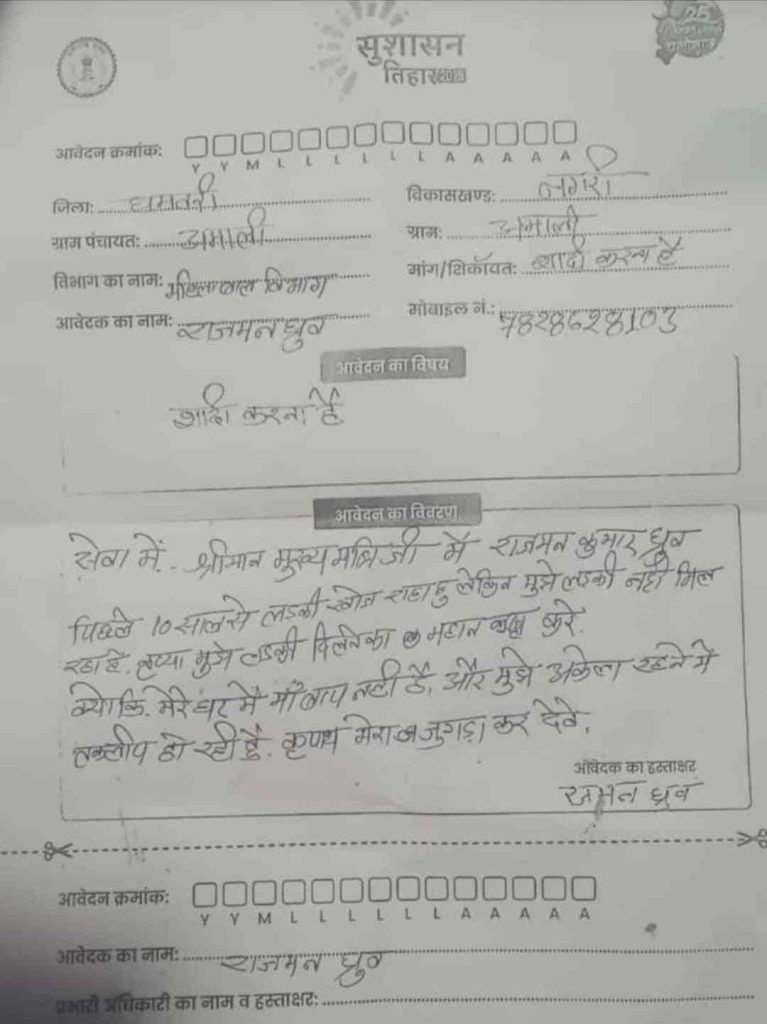 सुशासन
तिहार
आवेदन क्रमांक:
Y Y M L L L L L L A A A A A
जिला: धमतरी विकासखण्ड: नगरी
ग्राम पंचायत: उमाली ग्राम: उमाली
विभाग का नाम: महिला बाल विभाग मांग/शिकायत: शादी करना है
आवेदक का नाम: राजमन ध्रुव मोबाइल नं.:
आवेदन का विषय
शादि करना है
आवेदन का विवरण
सेवा में. श्रीमान मुख्यमंत्रि जी मै राजमन कुमार ध्रुव
पिछले 10 साल से लडकी खोज राहा हु लेकिन मुझे लडकी नही मिल
रहा है. मुझे लडकी महान करे.
क्योकि. मेरे घर मै माँ बाप नही है, और मुझे अकेला रहने मे
तकलीप हो रही है. मेरा कर देवे.
आवेदक का हस्ताक्षर
राजमन ध्रुव
आवेदन क्रमांक:
Y Y M L L L L L L A A A A A
आवेदक का नाम: राजमन ध्रुव
प्रभारी अधिकारी का नाम व हस्ताक्षर: